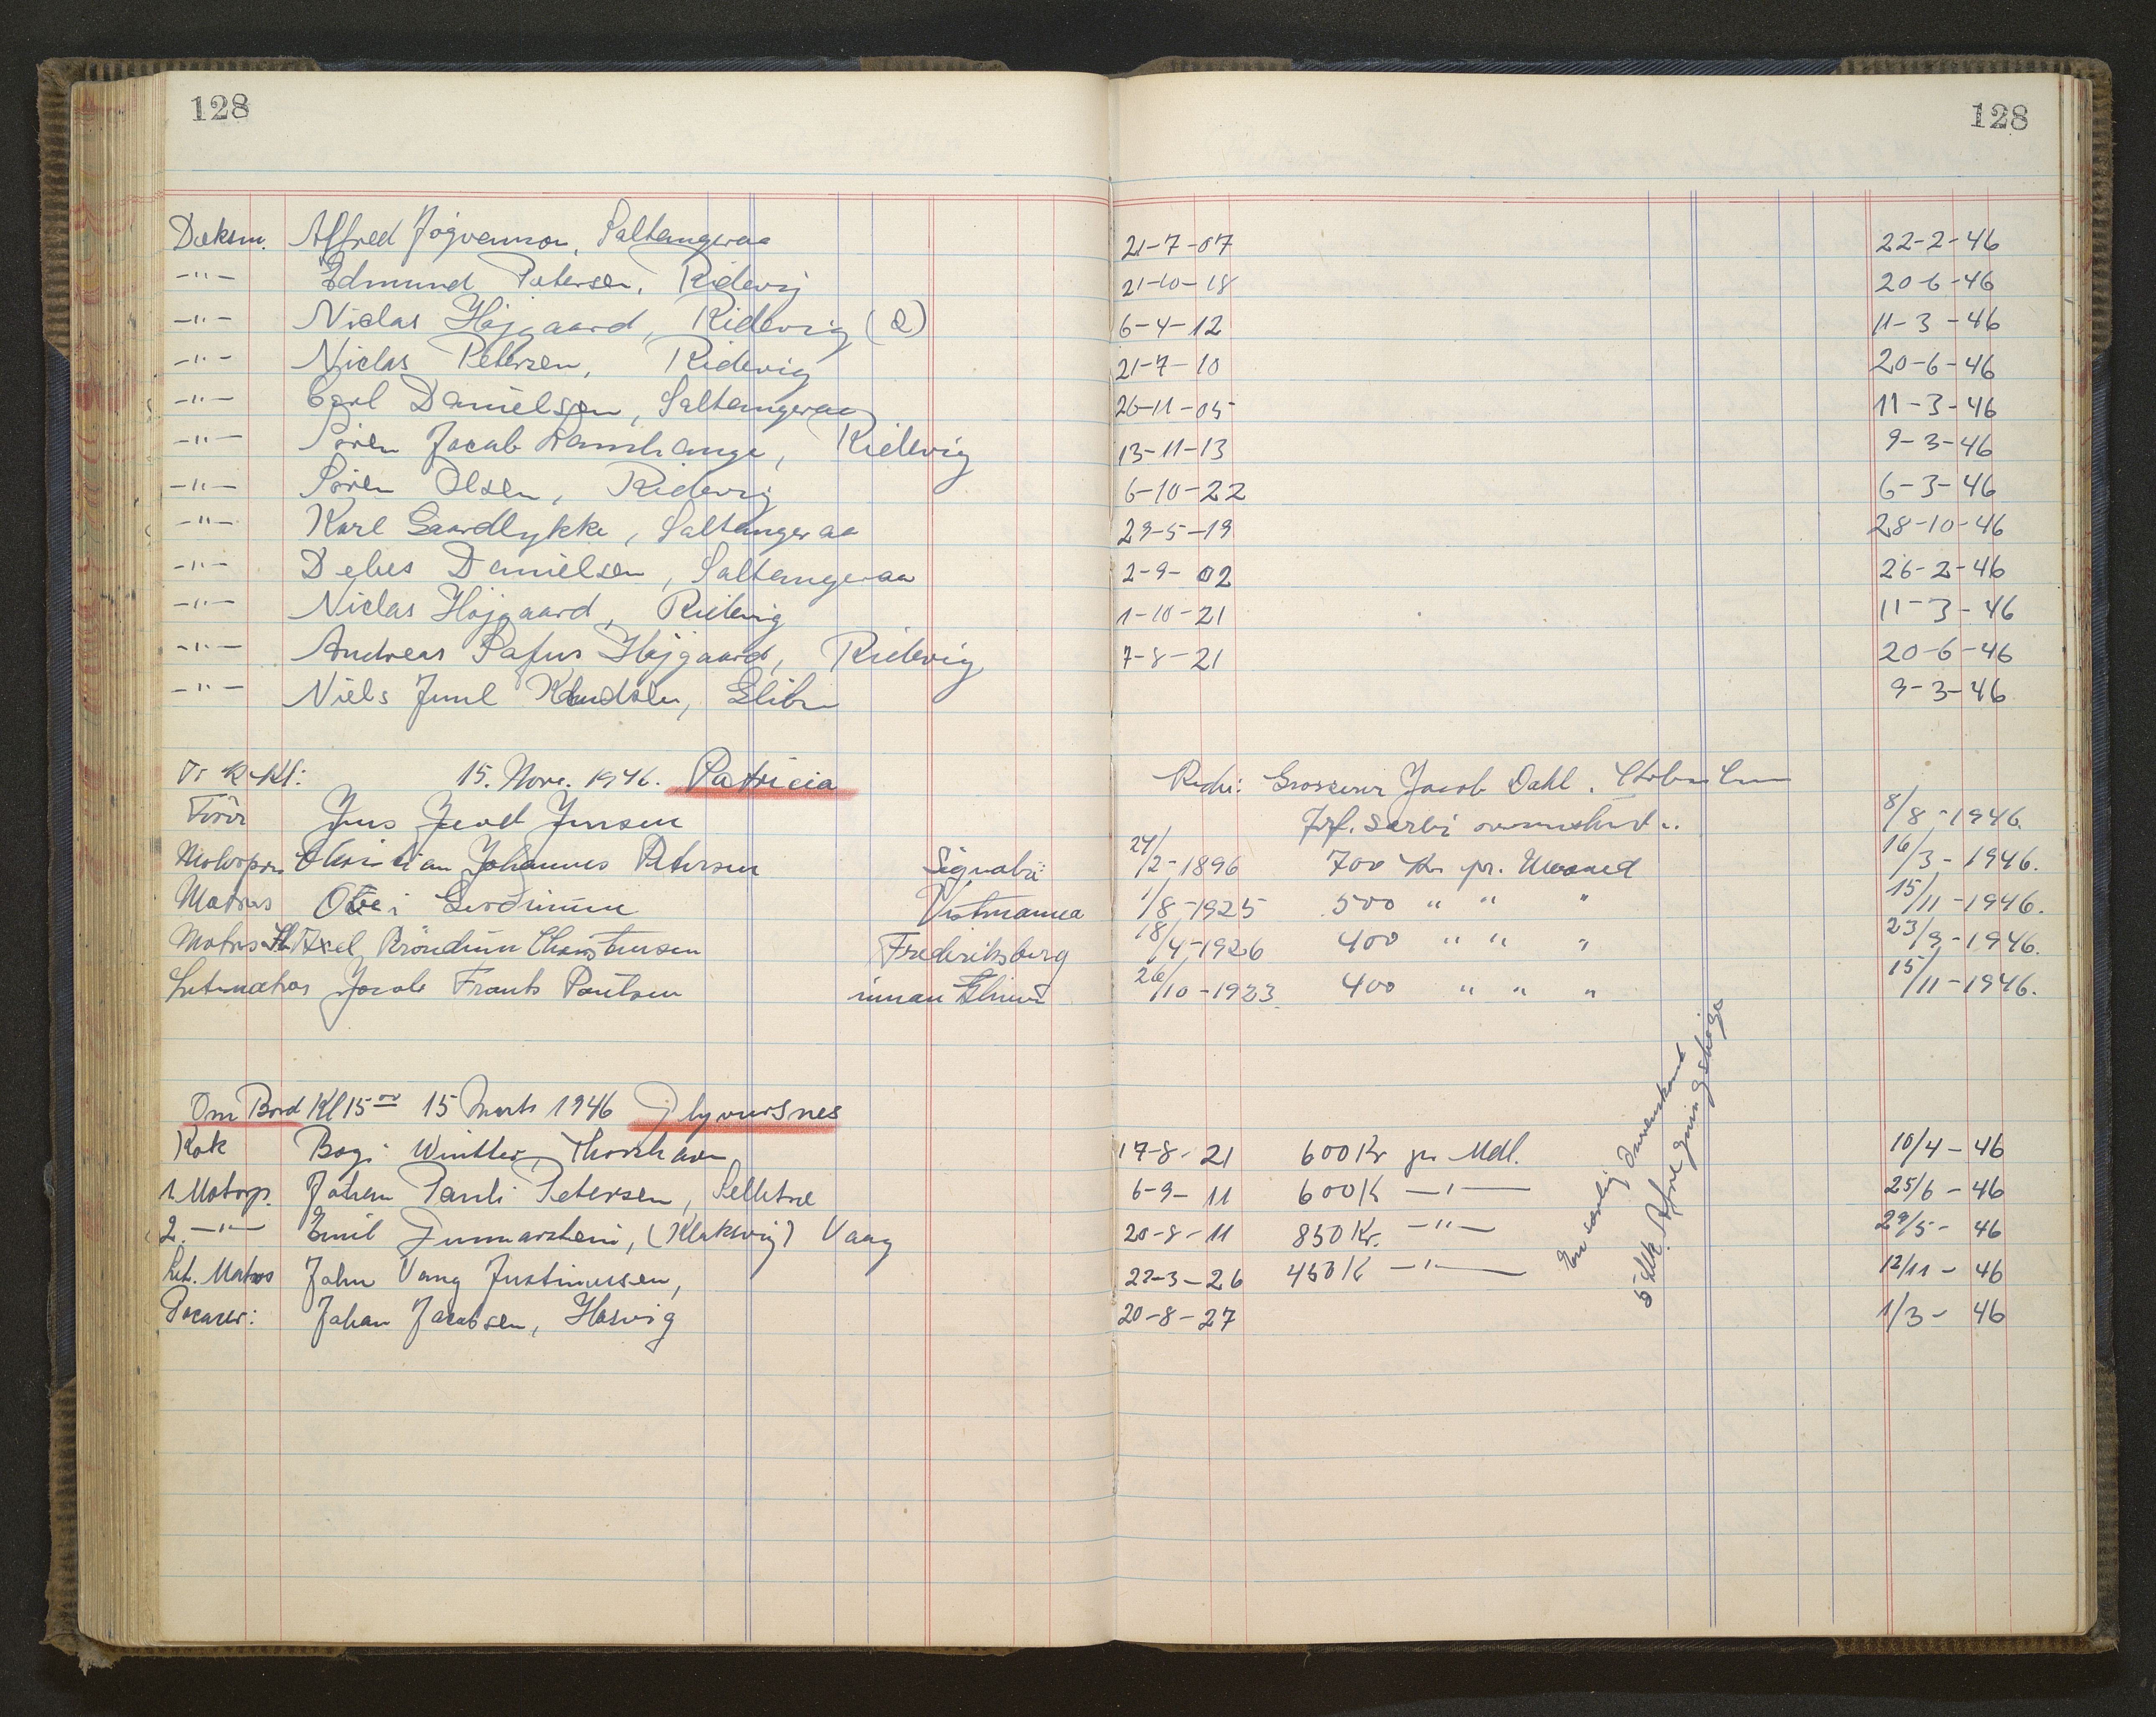 128
128
Dæksm. Alfred Jógvanson, Saltangeraa 21-7-07 22-2-46
-"- Edmund Petersen, Ridevig 21-10-18 20-6-46
-"- Niclas Højgaard, Ridevig (2) 6-4-12 11-3-46
-"- Niclas Petersen, Ridevig 21-7-10 20-6-46
-"- Carl Danielsen, Saltangeraa 26-11-05 11-3-46
-"- Sören Jacob Ridevig 13-11-13 9-3-46
-"- Sören Olsen, Ridevig 6-10-22 6-3-46
-"- Karl Gaardlykke, Saltangeraa 29-5-19 28-10-46
-"- Debes Danielsen, Saltangeraa 2-9-02 26-2-46
-"- Niclas Højgaard, Ridevig 1-10-21 11-3-46
-"- Andreas Rafus Højgaard, Ridevig 7-8-21 20-6-46
-"- Niels Juul Knudsen, 9-3-46
15. Nov. 1946. Patricia Jacob Dahl.
Förer Jens Jensen 8/8-1946.
Motorpas. Johannes Petersen 24/2-1896 700 Kr pr. Maaned 16/3-1946.
Matros 1/8-1925 500 " " " 15/11-1946.
Matros Axel Bröndum Christensen Frederiksberg 18/4-1926 400 " " " 23/9-1946.
Letmatros Jacob Frants Poulsen 26/10-1923 400 " " " 15/11-1946.
Om Bord Kl 15 00 15 Marts 1946 Glyvursnes
Kok Bogi Winther, Thorshavn 17-8-21 600 Kr pr Mdl. 10/4-46
1 Motorp. Johan Pauli Petersen, Selletræ 6-9-11 600 K -"- 25/6-46
2. -"- Emil Gunnarstein, (Klaksvig) Vaag 20-8-11 850 Kr. -"- 29/5-46
Let. Matros John Vang Justinussen, 22-3-26 450 K -"- 12/11-46
Johan Jacobsen, Hosvig 20-8-27 1/3-46